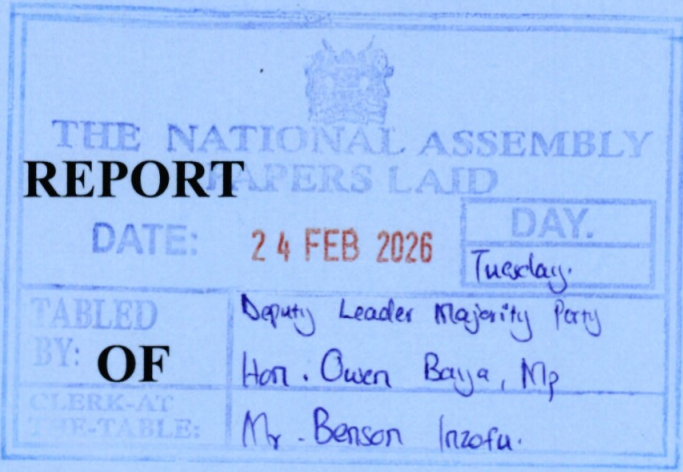 THE NATIONAL ASSEMBLY
REPORT
PAPERS LAID
DATE: 24 FEB 2026
DAY.
Tuesday.
TABLED BY:
Deputy Leader Majority Party
Hon. Owen Baya, Mp
OF
CLERK-AT THE-TABLE:
Mr. Benson Inzofu.